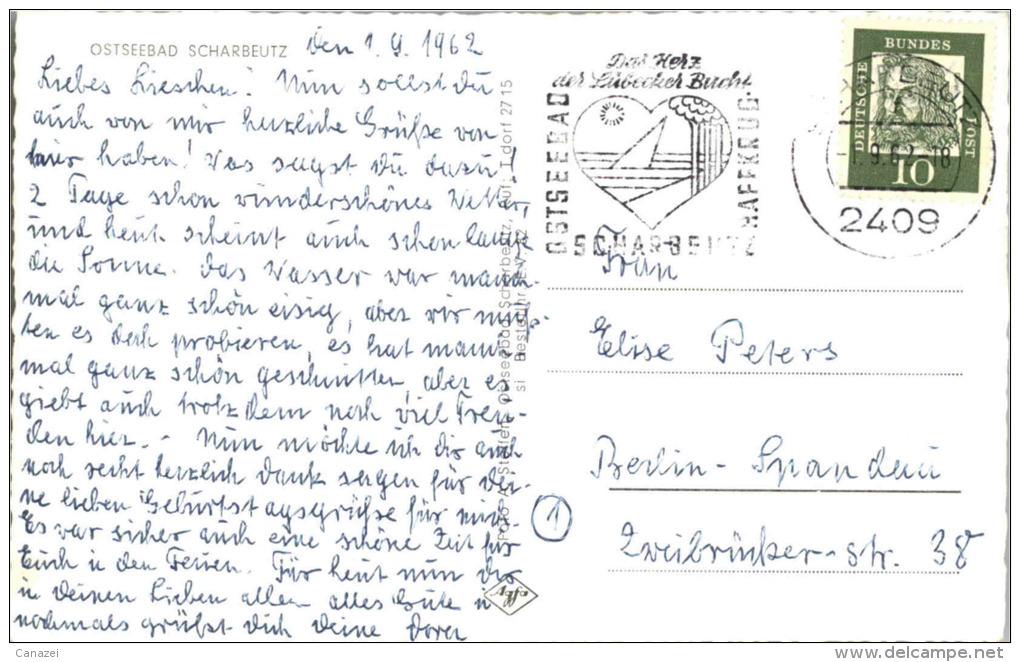 OSTSEEBAD SCHARBEUTZ
den 1.9.1962
Liebes Lieschen! Nun sollst Du
auch von mir herzliche Grüße von
hier haben! Was sagst Du dazu!
2 Tage schon wunderschönes Wetter,
und heut scheint auch schon lange
die Sonne. Das Wasser war manch-
mal ganz schön eisig, aber wir muß-
ten es doch probieren, es hat manch-
mal ganz schön geschnitten, aber es
giebt auch trotzdem noch viel Freu-
den hier. - Nun möchte ich Dir auch
noch recht herzlich Dank sagen für Dei-
ne lieben Geburtstagsgrüße für mich.
Es war sicher auch eine schöne Zeit für
Euch in den Ferien. Für heut nun Dir
u Deinen Lieben allen alles Gute u
nochmals grüßt Dich Deine
Ostseebad Scharbeutz,
dorf 27 15
Das Herz
der Lübecker Bucht
OSTSEEBAD
HAFFKRUG
SCHARBEUTZ
-1.9.62-18
2409
DEUTSCHE
BUNDES
POST
10
Frau
Elise Peters
Berlin-Spandau
1
Zweibrücker-str. 38
Canazei
www.delcampe.net